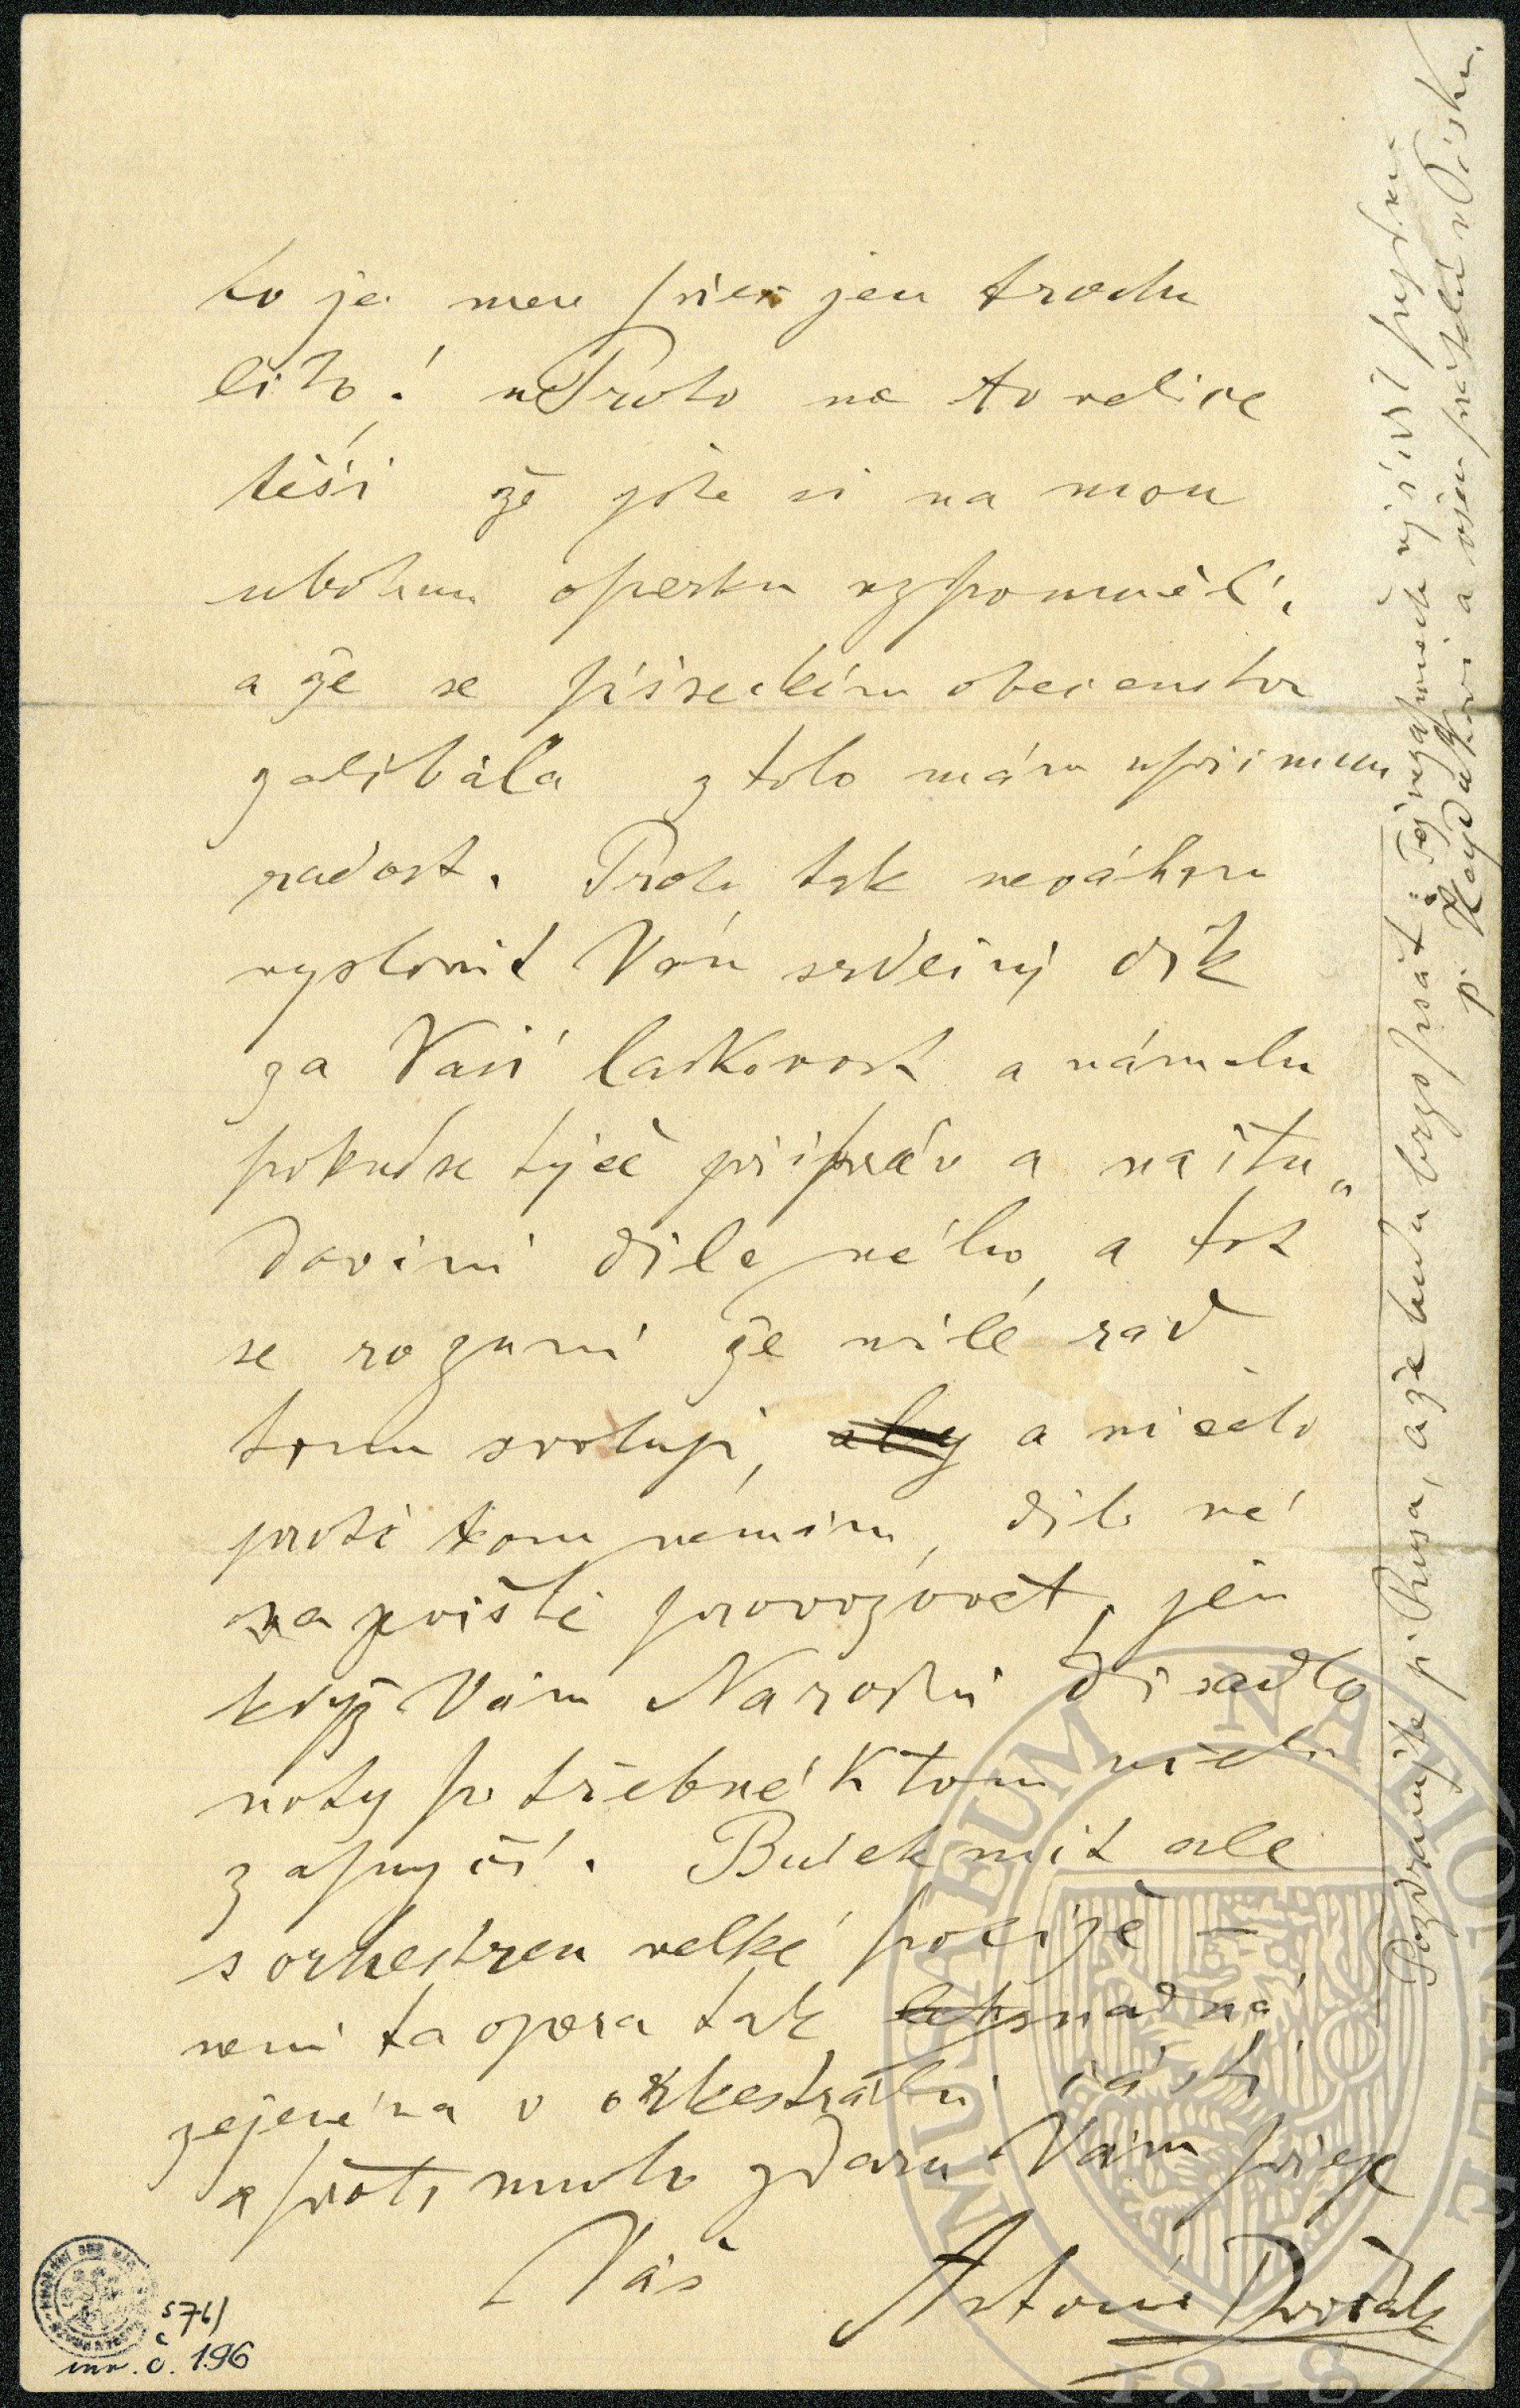 to je mu přec jen trochu
líto! Proto ne to velice
těší že jste si na mou
ubohou operku vzpomněli,
a že se píseckému obecenstvu
zalíbála z toho mám upřimnou
radost. Proto tak neváham
vyslovit Vám srdečný dík
za Vaší laskavost a námahu
pokud se týče připráv a naštu„
dování díla mého, a tot
se rozumí že milé rád
tomu svoluji, aby a ničeho
proti tomu nemám, dílo mé
na příště provozovat, jen
když Vám Narodni divadlo
noty potřebné k tomu
zapujčí. Budete mít ale
s orkestrem velké potíže –
neni ta opera tak snadná
zejména v orkestrální části
a proto mnoho zdaru Vám přeje
Váš Antonín Dvořák
Pozdravujte p. Rusa, a že budu brzo psát
p. Hajdukovi a všem přátelům v Písku.
576/
inv. č. 196
MUSAEUM NATIONALE
1818